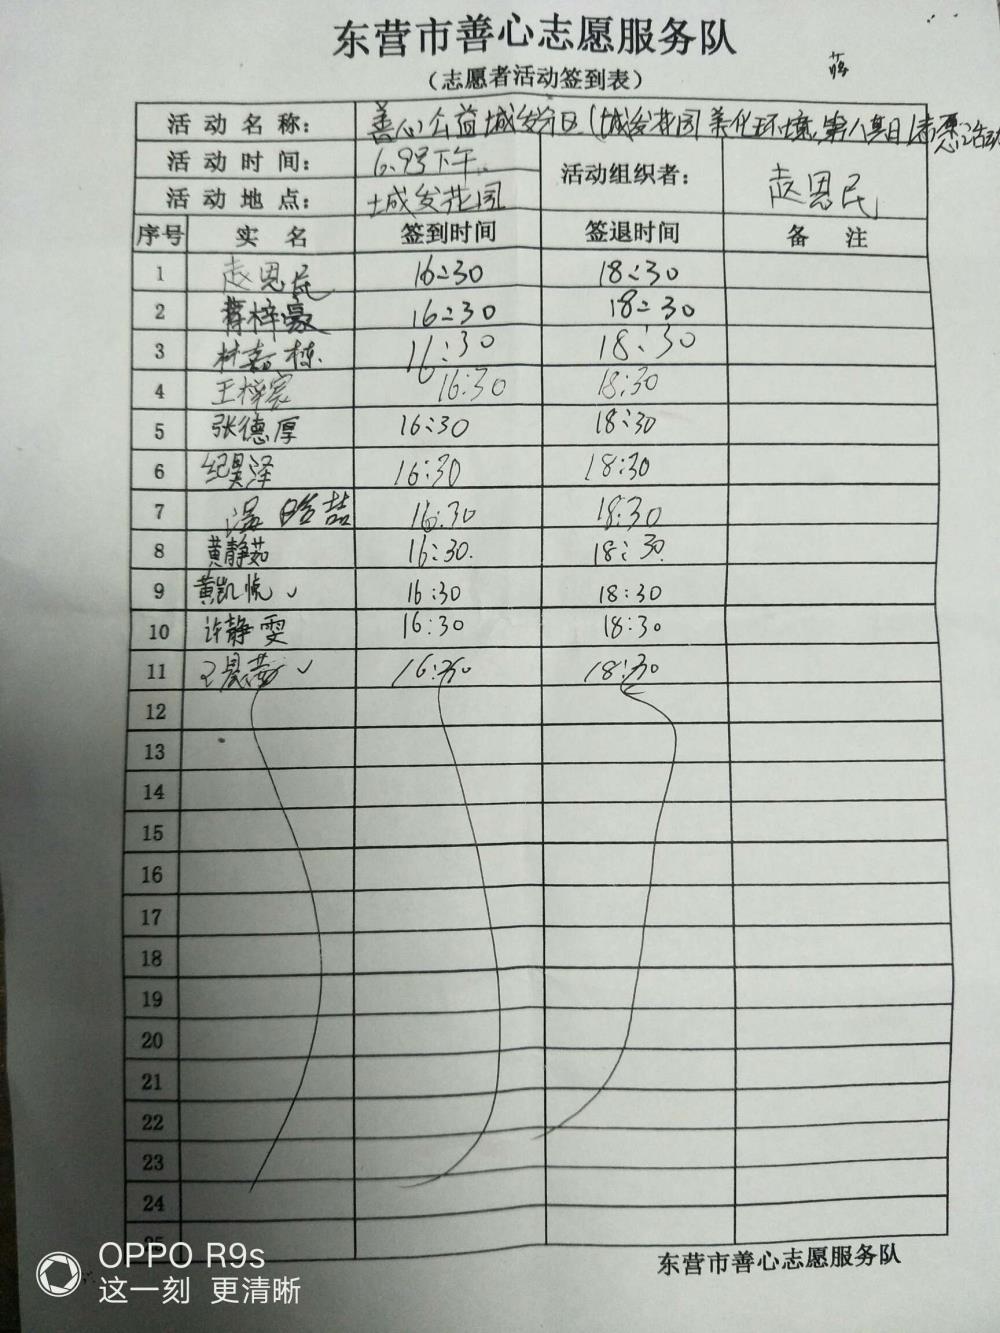 东营市善心志愿服务队
（志愿者活动签到表）
蒋
活动名称： 善心公益城发分区（城发花园美化环境，第八期）志愿活动
活动时间： 6.9号下午
活动组织者： 赵恩民
活动地点： 城发花园
序号 实名 签到时间 签退时间 备注
1 赵恩民 16:30 18:30
2 蒋梓豪 16:30 18:30
3 林嘉栋 16:30 18:30
4 王梓宸 16:30 18:30
5 张德厚 16:30 18:30
6 纪昊泽 16:30 18:30
7 温晗喆 16:30 18:30
8 黄静茹 16:30 18:30
9 黄凯悦 ✓ 16:30 18:30
10 许静雯 16:30 18:30
11 王晨 ✓ 16:30 18:30
12
13
14
15
16
17
18
19
20
21
22
23
24
25
东营市善心志愿服务队
OPPO R9s
这一刻 更清晰